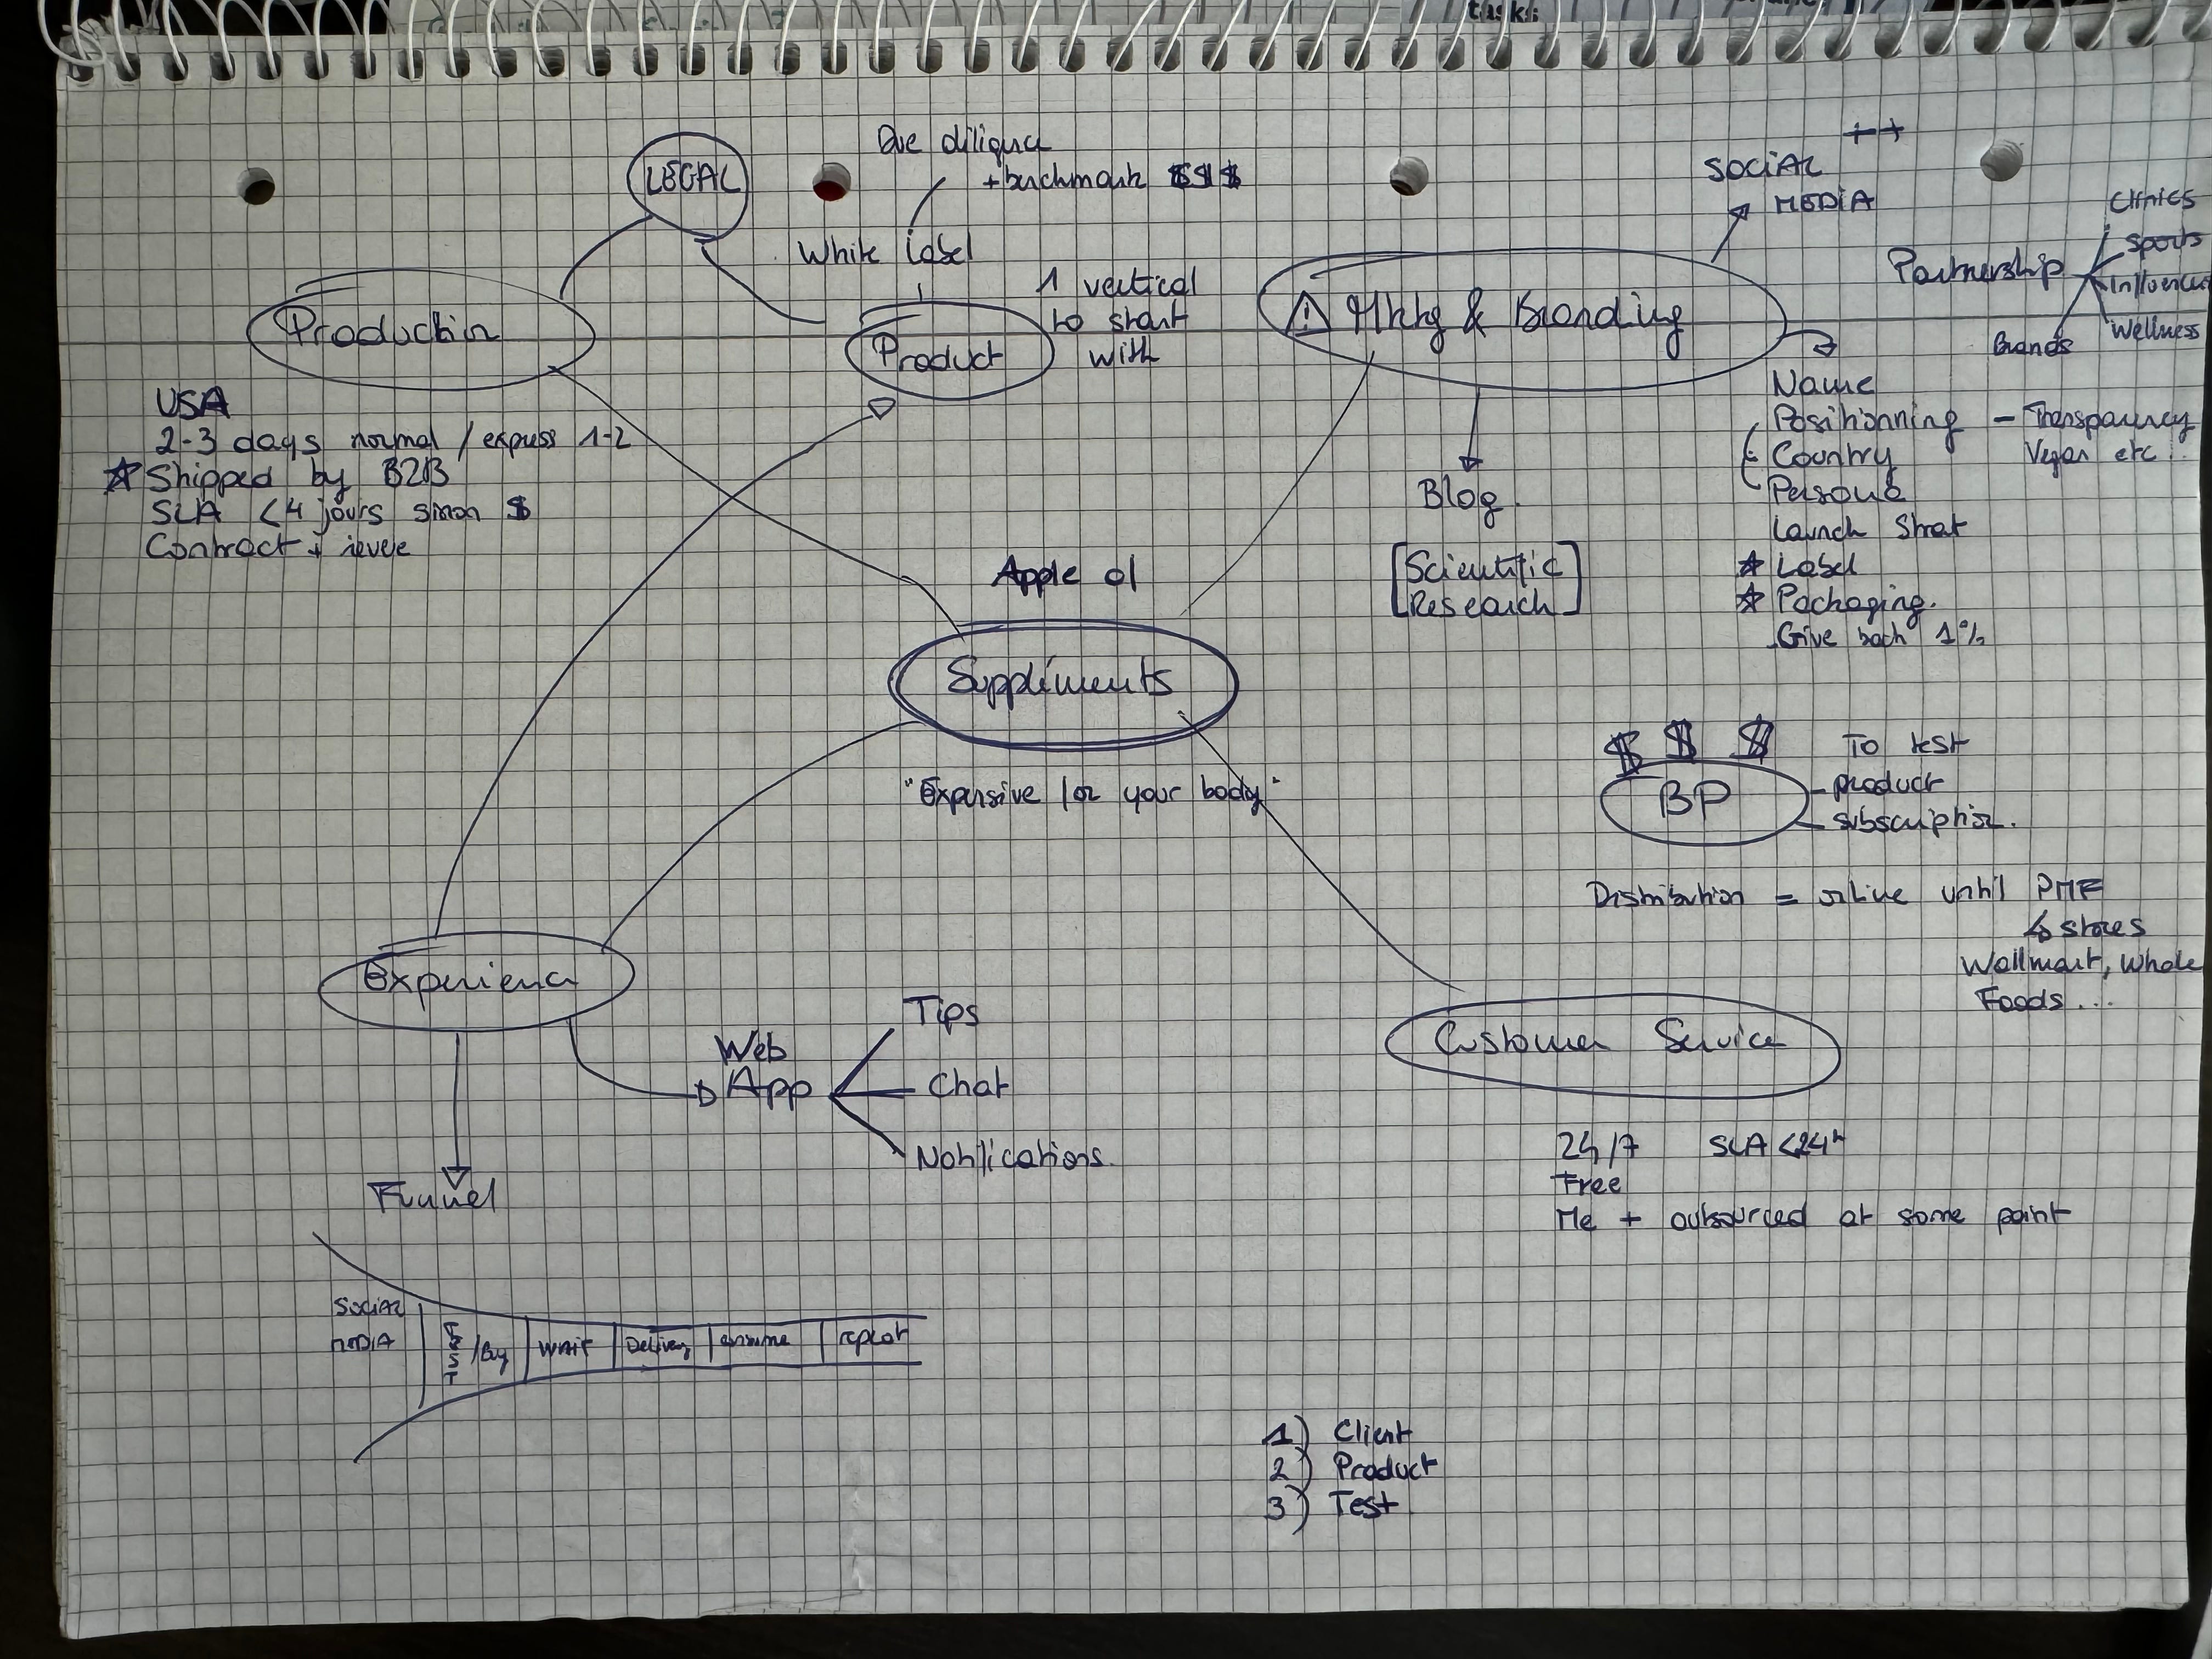 tasks:
LEGAL
Due diligence
+ benchmark $$$
White label
SOCIAL ++
MEDIA
Partnership
Clinics
Sports
Influencer
Wellness
Brands
Production
Product
1 vertical
to start
with
⚠ Mktg & Branding
USA
2-3 days normal / express 1-2
☆ Shipped by B2B
SLA <4 jours sinon $
Contract +
Name
Positionning – Transparency
Country Vegan etc...
Persona
Launch Strat
☆ Label
☆ Packaging.
Give back 1%
Blog.
[Scientific
Research]
Apple of
Suppléments
"Expensive for your body"
$ $ $
BP
To test
- product
- subscription.
Distribution = online until PMF
↳ stores
Wallmart, Whole
Foods...
Experience
Web
App
Tips
Chat
Notifications.
Customer Service
24/7 SLA <24h
Free
Me + outsourced at some point
Funnel
SOCIAL
MEDIA
TEST / Buy
WAIT
Delivery
consume
repeat
1) Client
2) Product
3) Test.